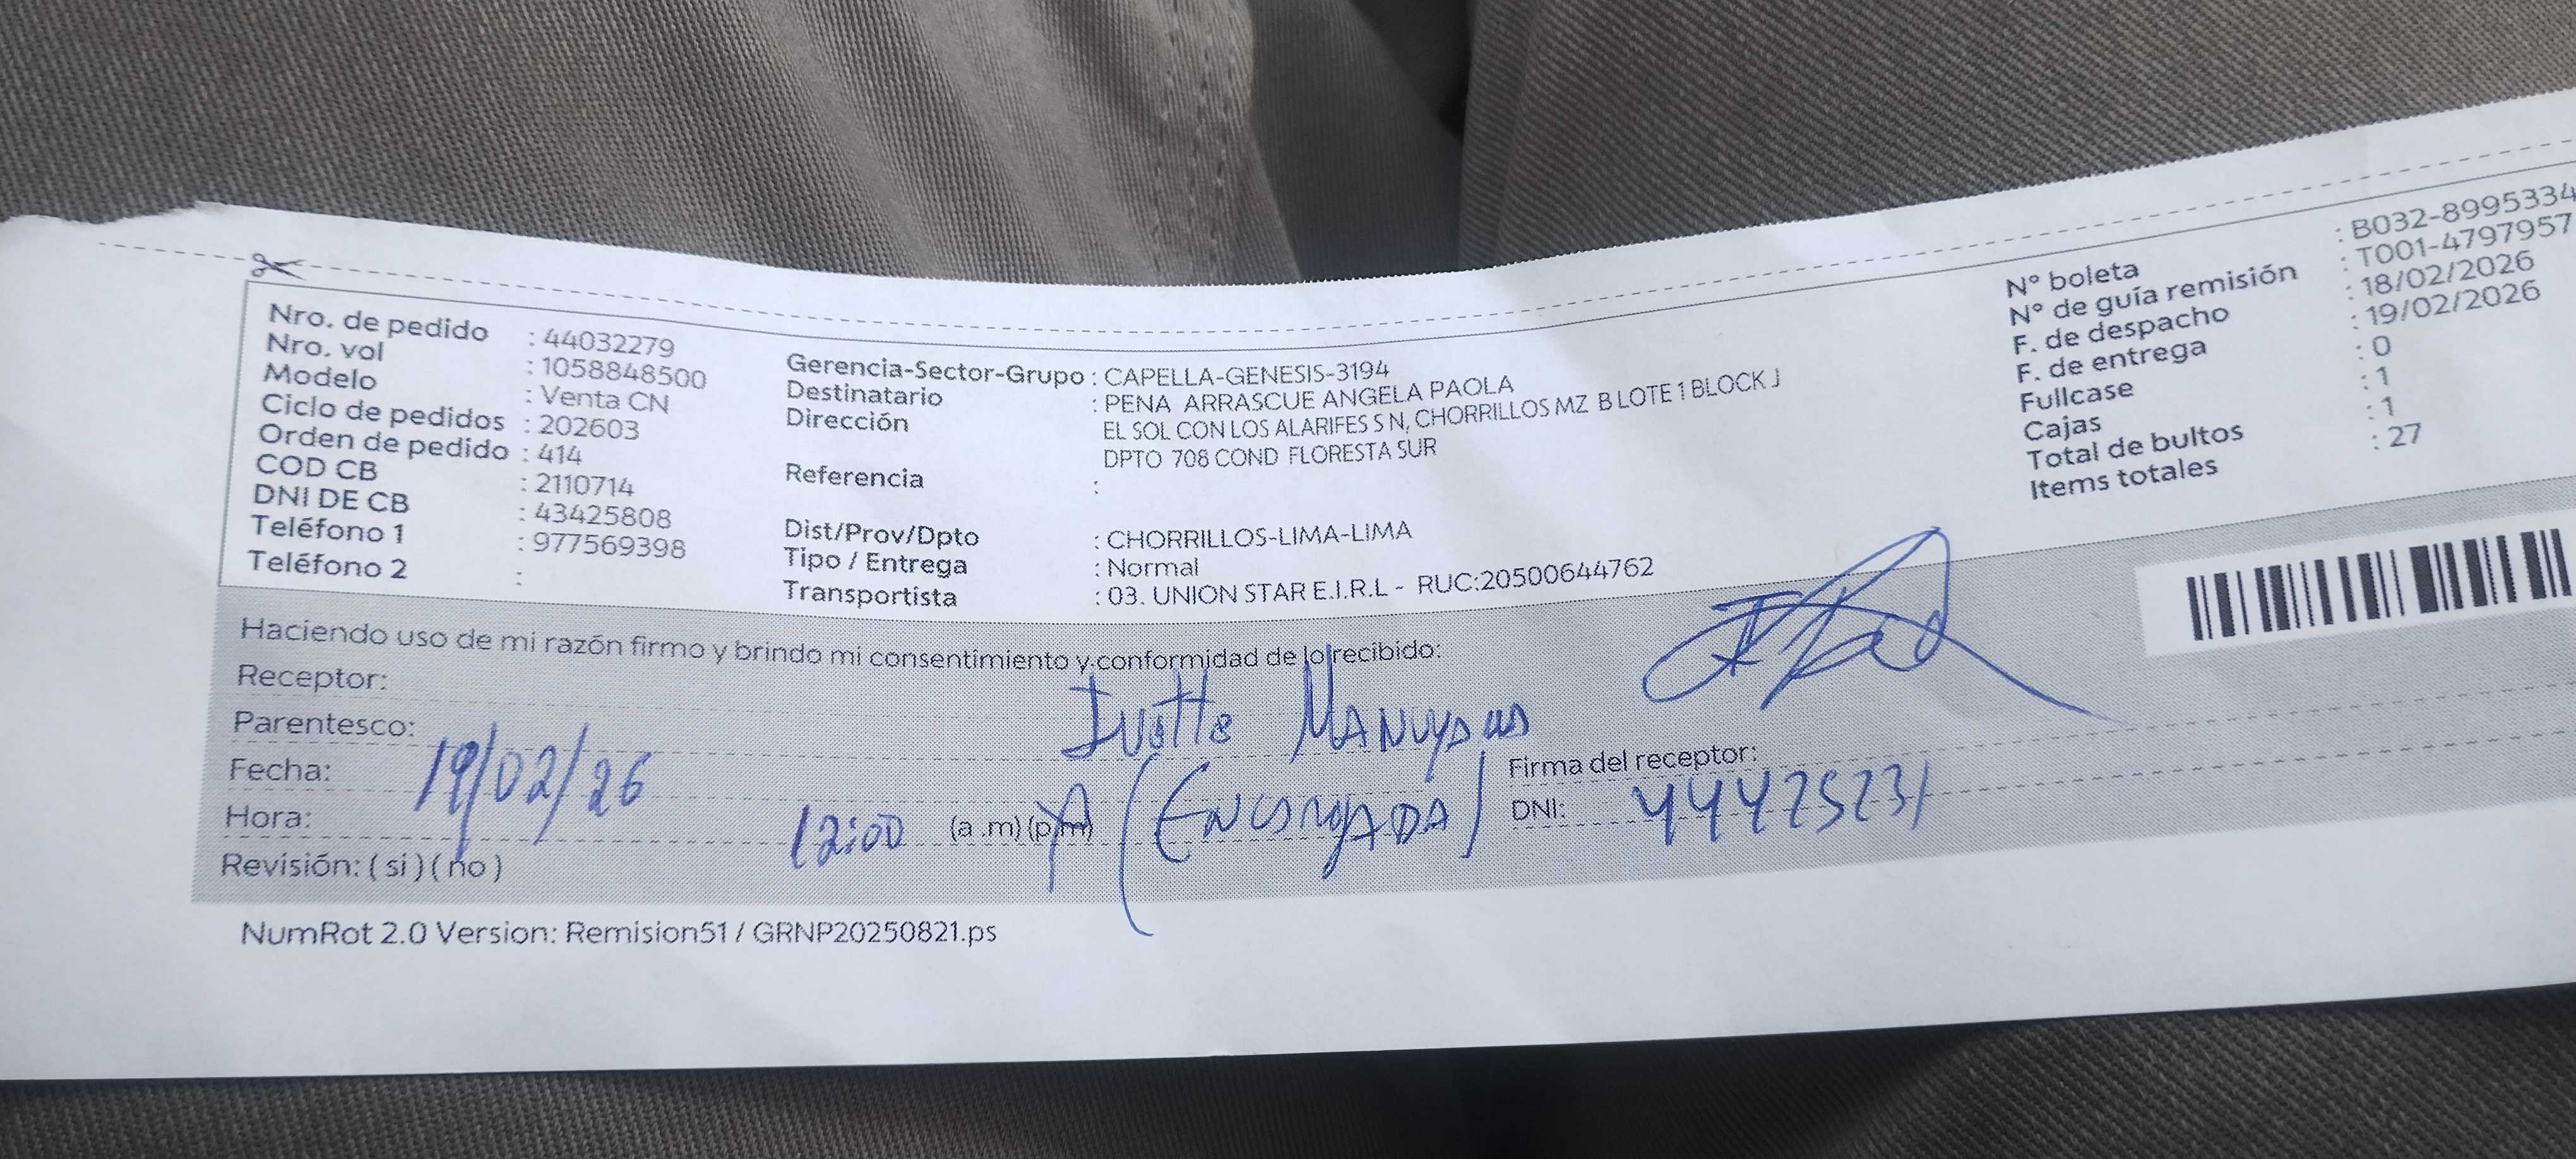 Nro. de pedido : 44032279
Nro. vol : 1058848500
Modelo : Venta CN
Ciclo de pedidos : 202603
Orden de pedido : 414
COD CB : 2110714
DNI DE CB : 43425808
Teléfono 1 : 977569398
Teléfono 2 :
Gerencia-Sector-Grupo : CAPELLA-GENESIS-3194
Destinatario : PENA ARRASCUE ANGELA PAOLA
Dirección : EL SOL CON LOS ALARIFES S N, CHORRILLOS MZ B LOTE 1 BLOCK J
DPTO 708 COND FLORESTA SUR
Referencia :
Dist/Prov/Dpto : CHORRILLOS-LIMA-LIMA
Tipo / Entrega : Normal
Transportista : 03. UNION STAR E.I.R.L - RUC:20500644762
N° boleta : B032-8995334
N° de guía remisión : T001-4797957
F. de despacho : 18/02/2026
F. de entrega : 19/02/2026
Fullcase : 0
Cajas : 1
Total de bultos : 1
Items totales : 27
Haciendo uso de mi razón firmo y brindo mi consentimiento y conformidad de lo recibido:
Receptor: Ivette
Parentesco:
Fecha: 19/02/26
Hora: 12:00 (a .m) (p.m) (ENCARGADA)
Firma del receptor:
DNI:
Revisión: ( si ) ( no )
NumRot 2.0 Version: Remision51 / GRNP20250821.ps